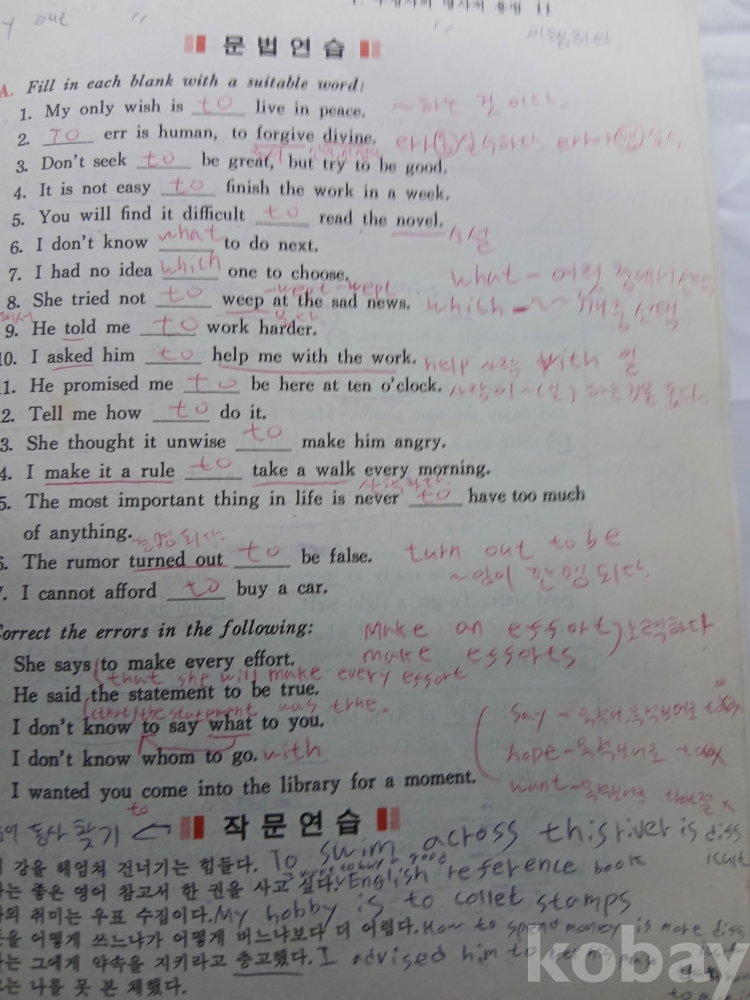 y out "
문법연습
A. Fill in each blank with a suitable word:
1. My only wish is to live in peace. ~하는 것 이다.
2. To err is human, to forgive divine.
3. Don't seek to be great, but try to be good.
4. It is not easy to finish the work in a week.
5. You will find it difficult to read the novel.
소설
6. I don't know what to do next.
7. I had no idea which one to choose. what - 여럿 중에서 선택
-wept-wept
8. She tried not to weep at the sad news. which - ~ 개중 선택
9. He told me to work harder.
10. I asked him to help me with the work. help 사람 with 일
11. He promised me to be here at ten o'clock. 사람이 ~(일) 하는것을 돕다.
2. Tell me how to do it.
3. She thought it unwise to make him angry.
4. I make it a rule to take a walk every morning.
산책하다.
5. The most important thing in life is never to have too much
of anything.
6. The rumor turned out to be false. turn out to be
7. I cannot afford to buy a car. ~임이 판명되다.
Correct the errors in the following: make an essort, 노력하다
She says to make every effort. make essorts
(that she will make every essort
He said the statement to be true.
(that) the statement was true.
I don't know to say what to you. say - 목적어,
I don't know whom to go. with hope-
I wanted you come into the library for a moment. want-
to
동사 찾기
작문연습
강을 헤엄쳐 건너기는 힘들다. To swim across this river is diss
는 좋은 영어 참고서 한 권을 사고 싶다. I want to buy a good English reference book
의 취미는 우표 수집이다. My hobby is to collet stamps
을 어떻게 쓰느냐가 어떻게 버느냐보다 더 어렵다. How to spend money is more diss
는 그에게 약속을 지키라고 충고했다. I advised him to
는 나를 못 본 체했다.
kobay